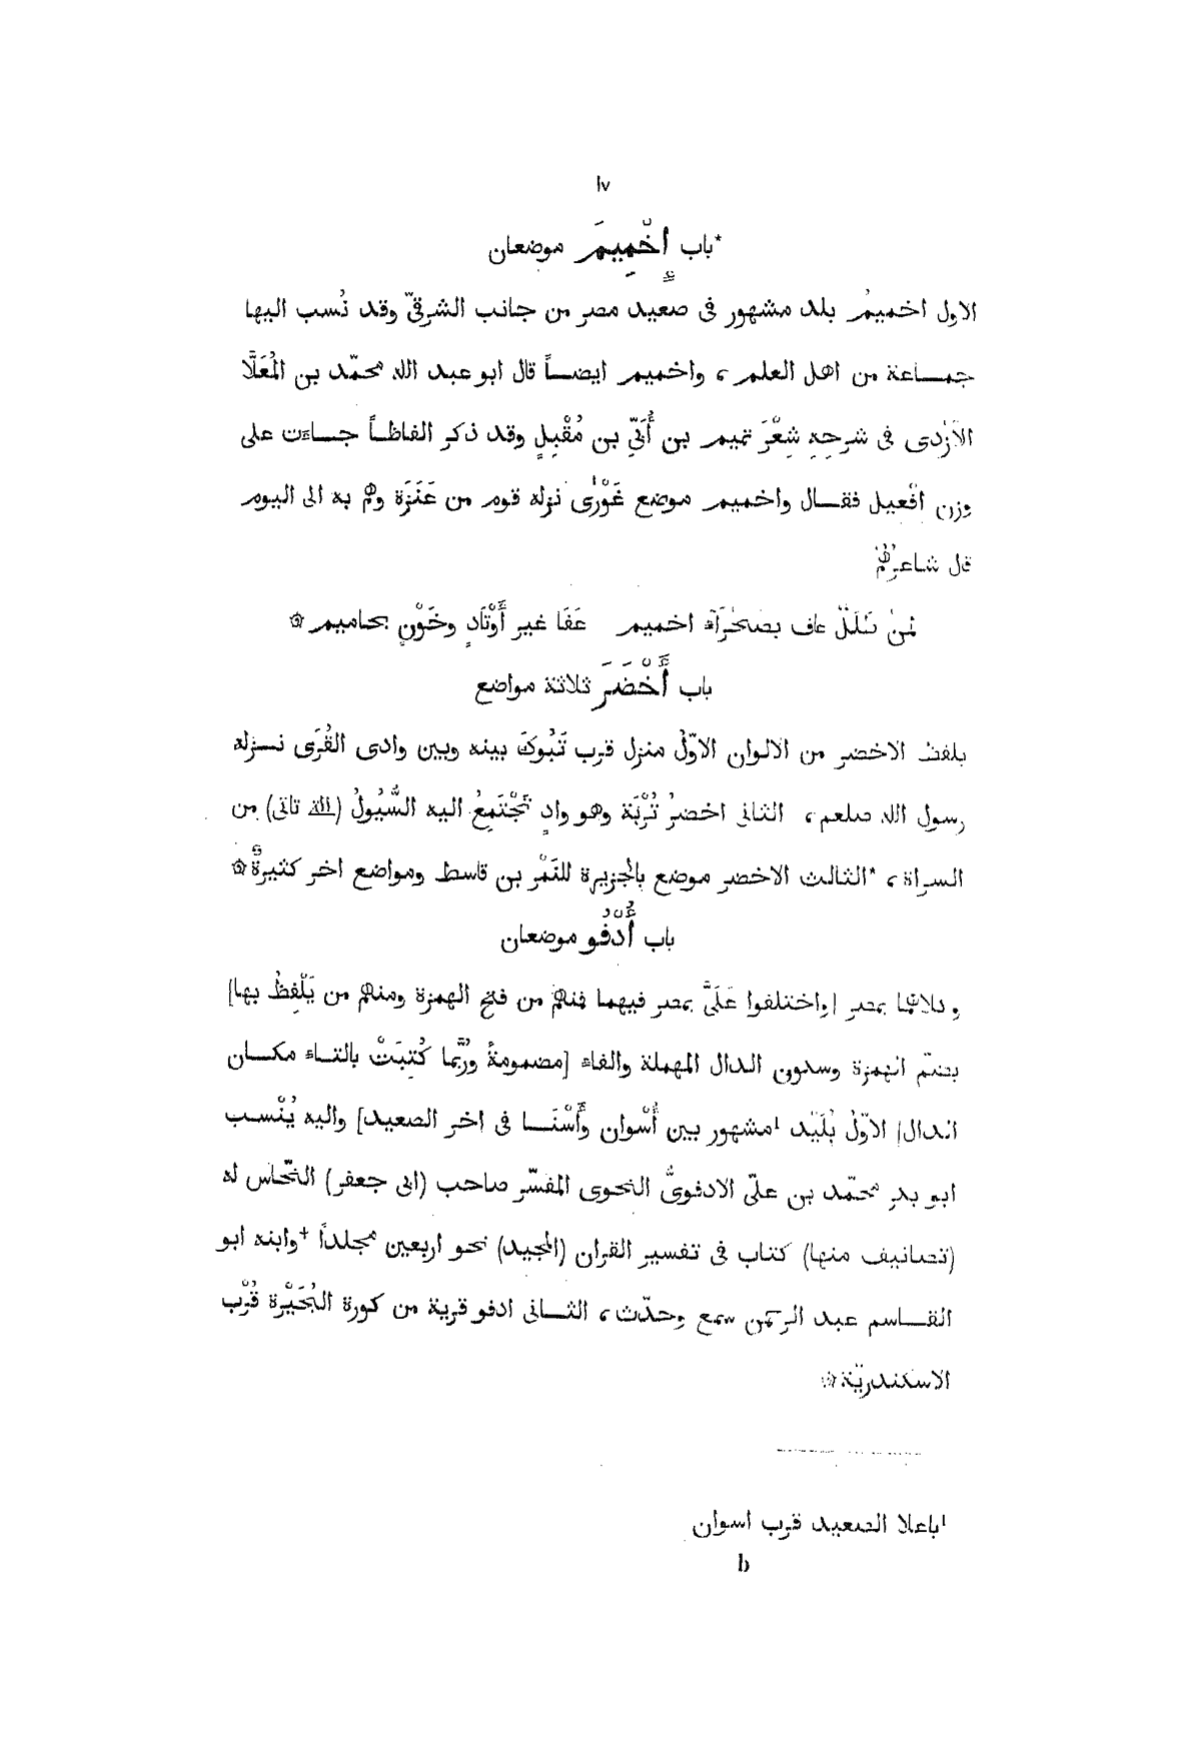 ١٧
*باب إِخْمِيمَ موضعان
الاول اخميمُ بلد مشهور فى صعيد مصر من جانب الشرقىّ وقد نُسب اليها
جمـاعة من اهل العلم ، واخميم ايضـاً قال ابو عبد الله محمّد بن المُعَلَّا
الأَزْدى فى شرحِهِ شِعْرَ تميم بن أُبَىّ بن مُقْبِلٍ وقد ذكر الفاظـاً جـاءت على
وزن افْعيل فقـال واخميم موضع غَوْرىّ نزله قوم من عَنَزَة وهم به الى اليوم
قال شاعرُهُمْ
لمن طَلَلٌ عافٍ بصَحْرَآء اخميم عَفَا غير أَوْتَادٍ وخَوْنٍ بحاميم ۞
باب أَخْضَرَ ثلاثة مواضع
بلفظ الاخضر من الالوان الاوّلُ منزل قرب تَبُوكَ بينه وبين وادى القُرَى نـزله
رسول الله صلعم ، الثانى اخضرُ تُرْبَة وهو وادٍ تَجْتَمِعُ اليه السُّيُولُ (التى تاتى) من
السراة ، *الثالث الاخضر موضع بالجزيرة للنَمْر بن قاسط ومواضع اخر كثيرةٌ ۞
باب أُدْفُو موضعان
وكلاهما بمصر [واختلفوا عَلَىَّ بمصر فيهما فمنهم من فتح الهمزة ومنهم من يَلْفِظُ بها]
بضمّ الهمزة وسكون الدال المهملة والفاء [مضمومةً ورُبَّما كُتِبَتْ بالتـاء مكـان
الدال] الاوّلُ بُلَيْد ¹مشهور بين أُسْوان وأَسْنَـا فى اخر الصعيد] واليه يُنْسـب
ابو بكر محمّد بن علىّ الادفوىُّ النحوى المفسّر صاحب (ابى جعفر) النحّاس له
(تصانيف منها) كتاب فى تفسير القران (المجيد) نحو اربعين مجلداً †وابنه ابو
القـاسم عبد الرحمن سمع وحدّث ، الثـانى ادفو قرية من كورة البُحَيْرة قُرْب
الاسكندريّة ۞
¹باعلا الصعيد قرب اسوان
b